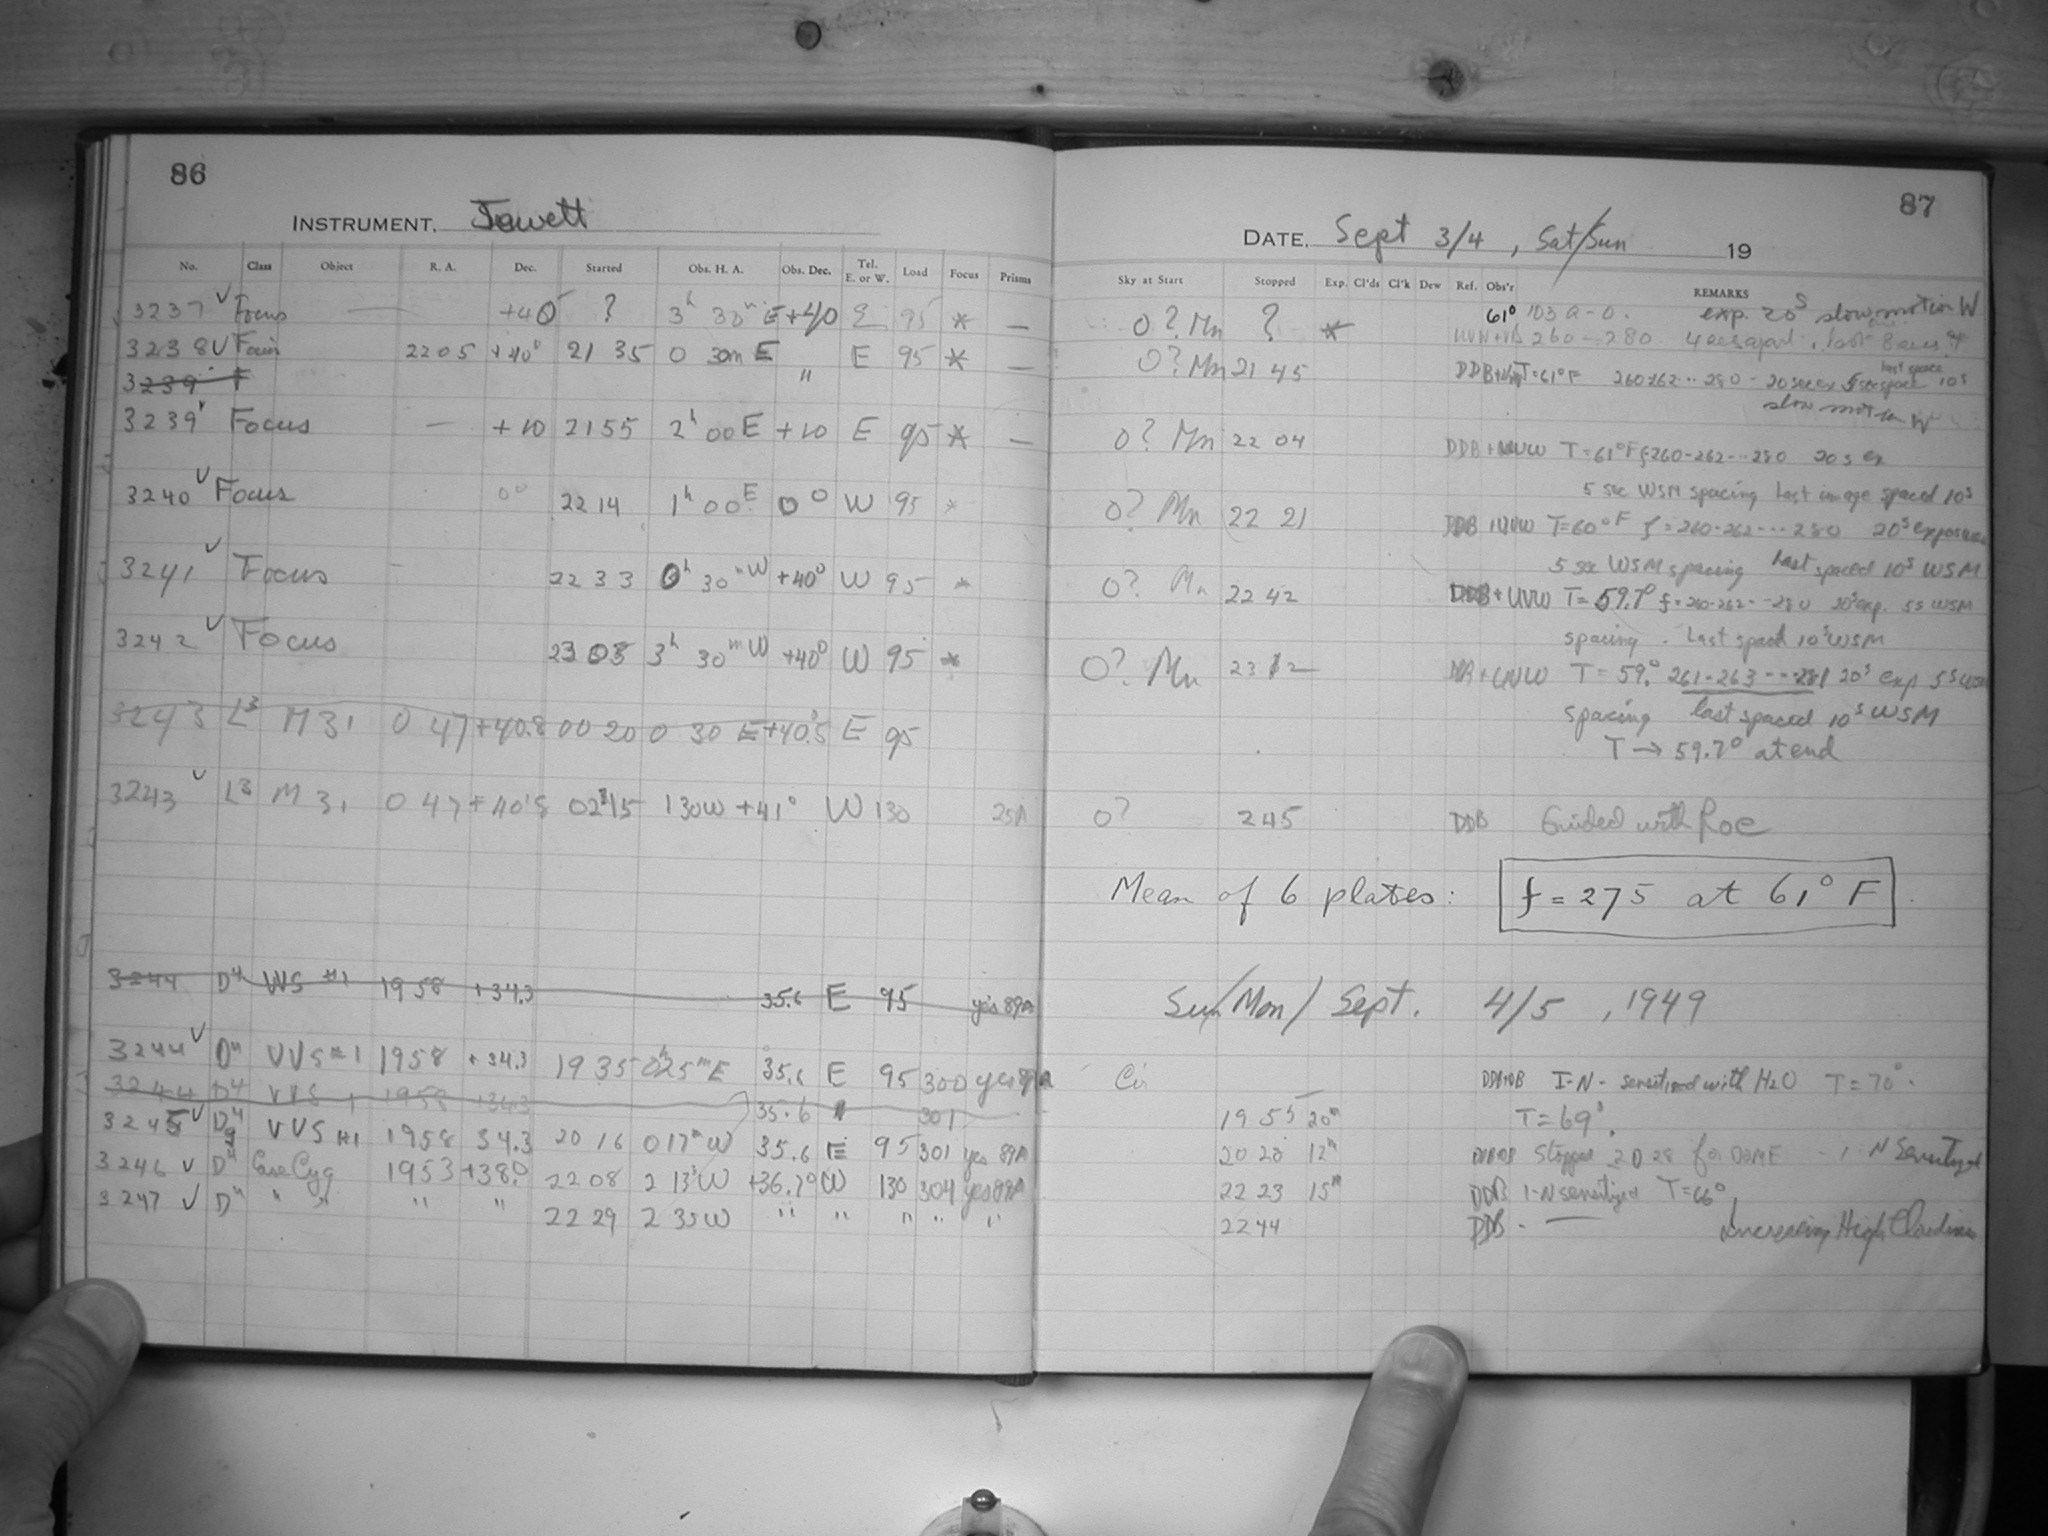 86
INSTRUMENT. Jewett
No. Class Object R. A. Dec. Started Obs. H. A. Obs. Dec. Tel. E. or W. Load Focus Prisms
3237 V Focus — +40 ? 3h 30m E +40 E 95 * —
3238 V Focus 2205 +40° 21 35 0 30m E " E 95 * —
3239 F
3239 V Focus — +10 2155 2h 00 E +10 E 95 * —
3240 V Focus 0° 2214 1h 00 E 0° W 95 *
3241 V Focus - 2233 0h 30m W +40° W 95 *
3242 V Focus 2303 3h 30m W +40° W 95 *
3243 L3 M 31 0 47 +40.8 00 20 0 30 E +40.5 E 95
3243 V L3 M 31 0 47 +40.8 02 15 1 30W +41° W 130 25A
3244 D4 WS #1 1958 +34.3 35.6 E 95 yes 89A
3244 V D4 VVS #1 1958 +34.3 1935 0h25mE 35.6 E 95 300 yes
3244 D4 VVS 1 1958 +34.3 35.6 301
3245 V D4 VVS #1 1958 34.3 20 16 0 17m W 35.6 E 95 301 yes 89A
3246 V D4 Case Cyg 1953 +38.0 2208 2 13 W +36.7° W 130 304 yes 89A
3247 V D4 " " " " 2229 2 35W " " " " "
87
DATE. Sept 3/4, Sat/Sun 19
Sky at Start Stopped Exp. Cl'ds Cl'k Dew Ref. Obs'r REMARKS
0? Mn ? * 61° 103 a-O. exp. 20s slow motion W
260 – 280
0? Mn 21 45 DDB T=61°F 260 262 ... 280 - 20 sec ex 5 sec space last space 10s
slow motion W
0? Mn 22 04 DDB + UVW T=61°F f=260-262-..280 20s ex
5 sec WSM spacing last image spaced 10s
0? Mn 22 21 DDB + UVW T=60°F f=260-262-...280 20s exposure
5 sec WSM spacing last spaced 10s WSM
0? Mn 22 42 DDB + UVW T=59.7° f=260-262--280 20s exp. 5s WSM
spacing. Last spaced 10s WSM
0? Mn 23 12 T=59.° 261-263---281 20s exp 5s WSM
spacing last spaced 10s WSM
T → 59.7° at end
0? 245 DDB Guided with Roe
Mean of 6 plates: f = 275 at 61° F
Sun/Mon/ Sept. 4/5, 1949
Ci I-N- sensitized with H2O T=70°.
19 55 20m T=69°.
20 28 12m Stopped 2028 for DOME - I-N Sensitized
22 23 15m DDB I-N sensitized T=66°
2244 DDB - — Increasing High Cloudiness